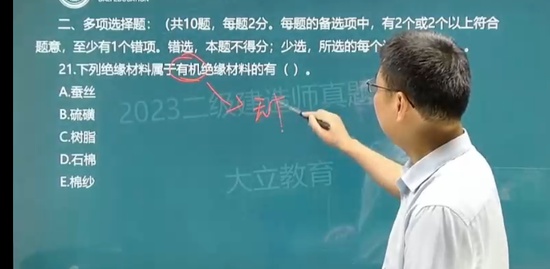 二、多项选择题：（共10题，每题2分。每题的备选项中，有2个或2个以上符合
题意，至少有1个错项。错选，本题不得分；少选，所选的每个
21.下列绝缘材料属于有机绝缘材料的有（ ）。
A.蚕丝
B.硫磺
C.树脂
D.石棉
E.棉纱
2023二级建造师真题
大立教育